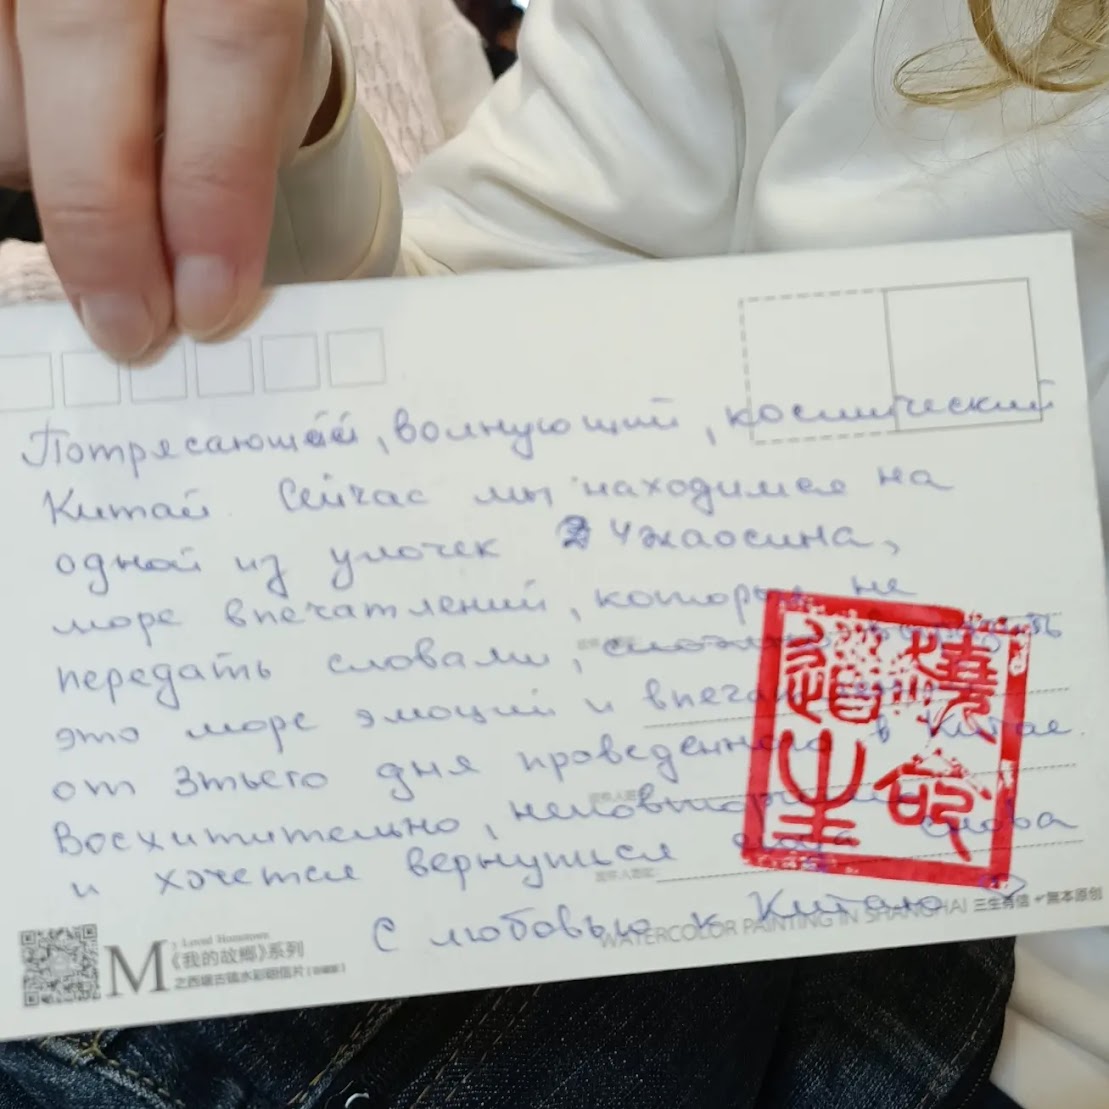 Потрясающий, волнующий, космический
Китай. Сейчас мы находимся на
одной из улочек Чжаосина,
море впечатлений, которые не
передать словами, сложно передать
это море эмоций и впечатлений
от 3тьего дня проведенного в Китае.
Восхитительно, неповторимо
и хочется вернуться сюда снова
С любовью к Китаю
WATERCOLOR PAINTING IN SHANGHAI 三生有信
無本原创
M
y Loved Hometown
《我的故鄉》系列
之西塘古镇水彩明信片